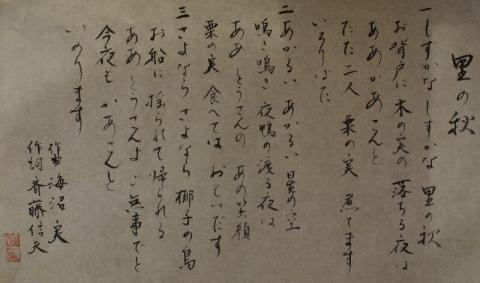 里の秋
一 しずかな しずかな 里の秋
お背戸に 木の実の 落ちる夜は
ああ かあさんと
ただ二人 栗の実 煮てます
いろりばた
二 あかるい あかるい 星の空
鳴き鳴き 夜鴨の 渡る夜は
ああ とうさんの あの笑顔
栗の実 食べては おもいだす
三 さよなら さよなら 椰子の島
お船に 揺られて 帰られる
ああ とうさんよ ご無事でと
今夜も かあさんと
いのります
作曲 海沼 実
作詞 斉藤信夫